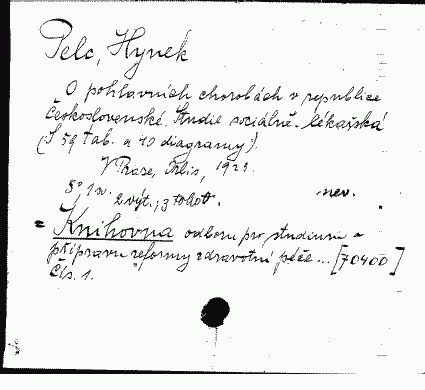 Pelc, Hynek
O pohlavních chorobách v republice
Československé. Studie sociálně-lékařská
(S 59 tab. a 40 diagramy).
V Praze, Orbis, 1923.
8°, 1 sv. 2 výt.; 3 nev.
= Knihovna odboru pro studium a
přípravu reformy zdravotní péče... [70400]
Čís. 1.